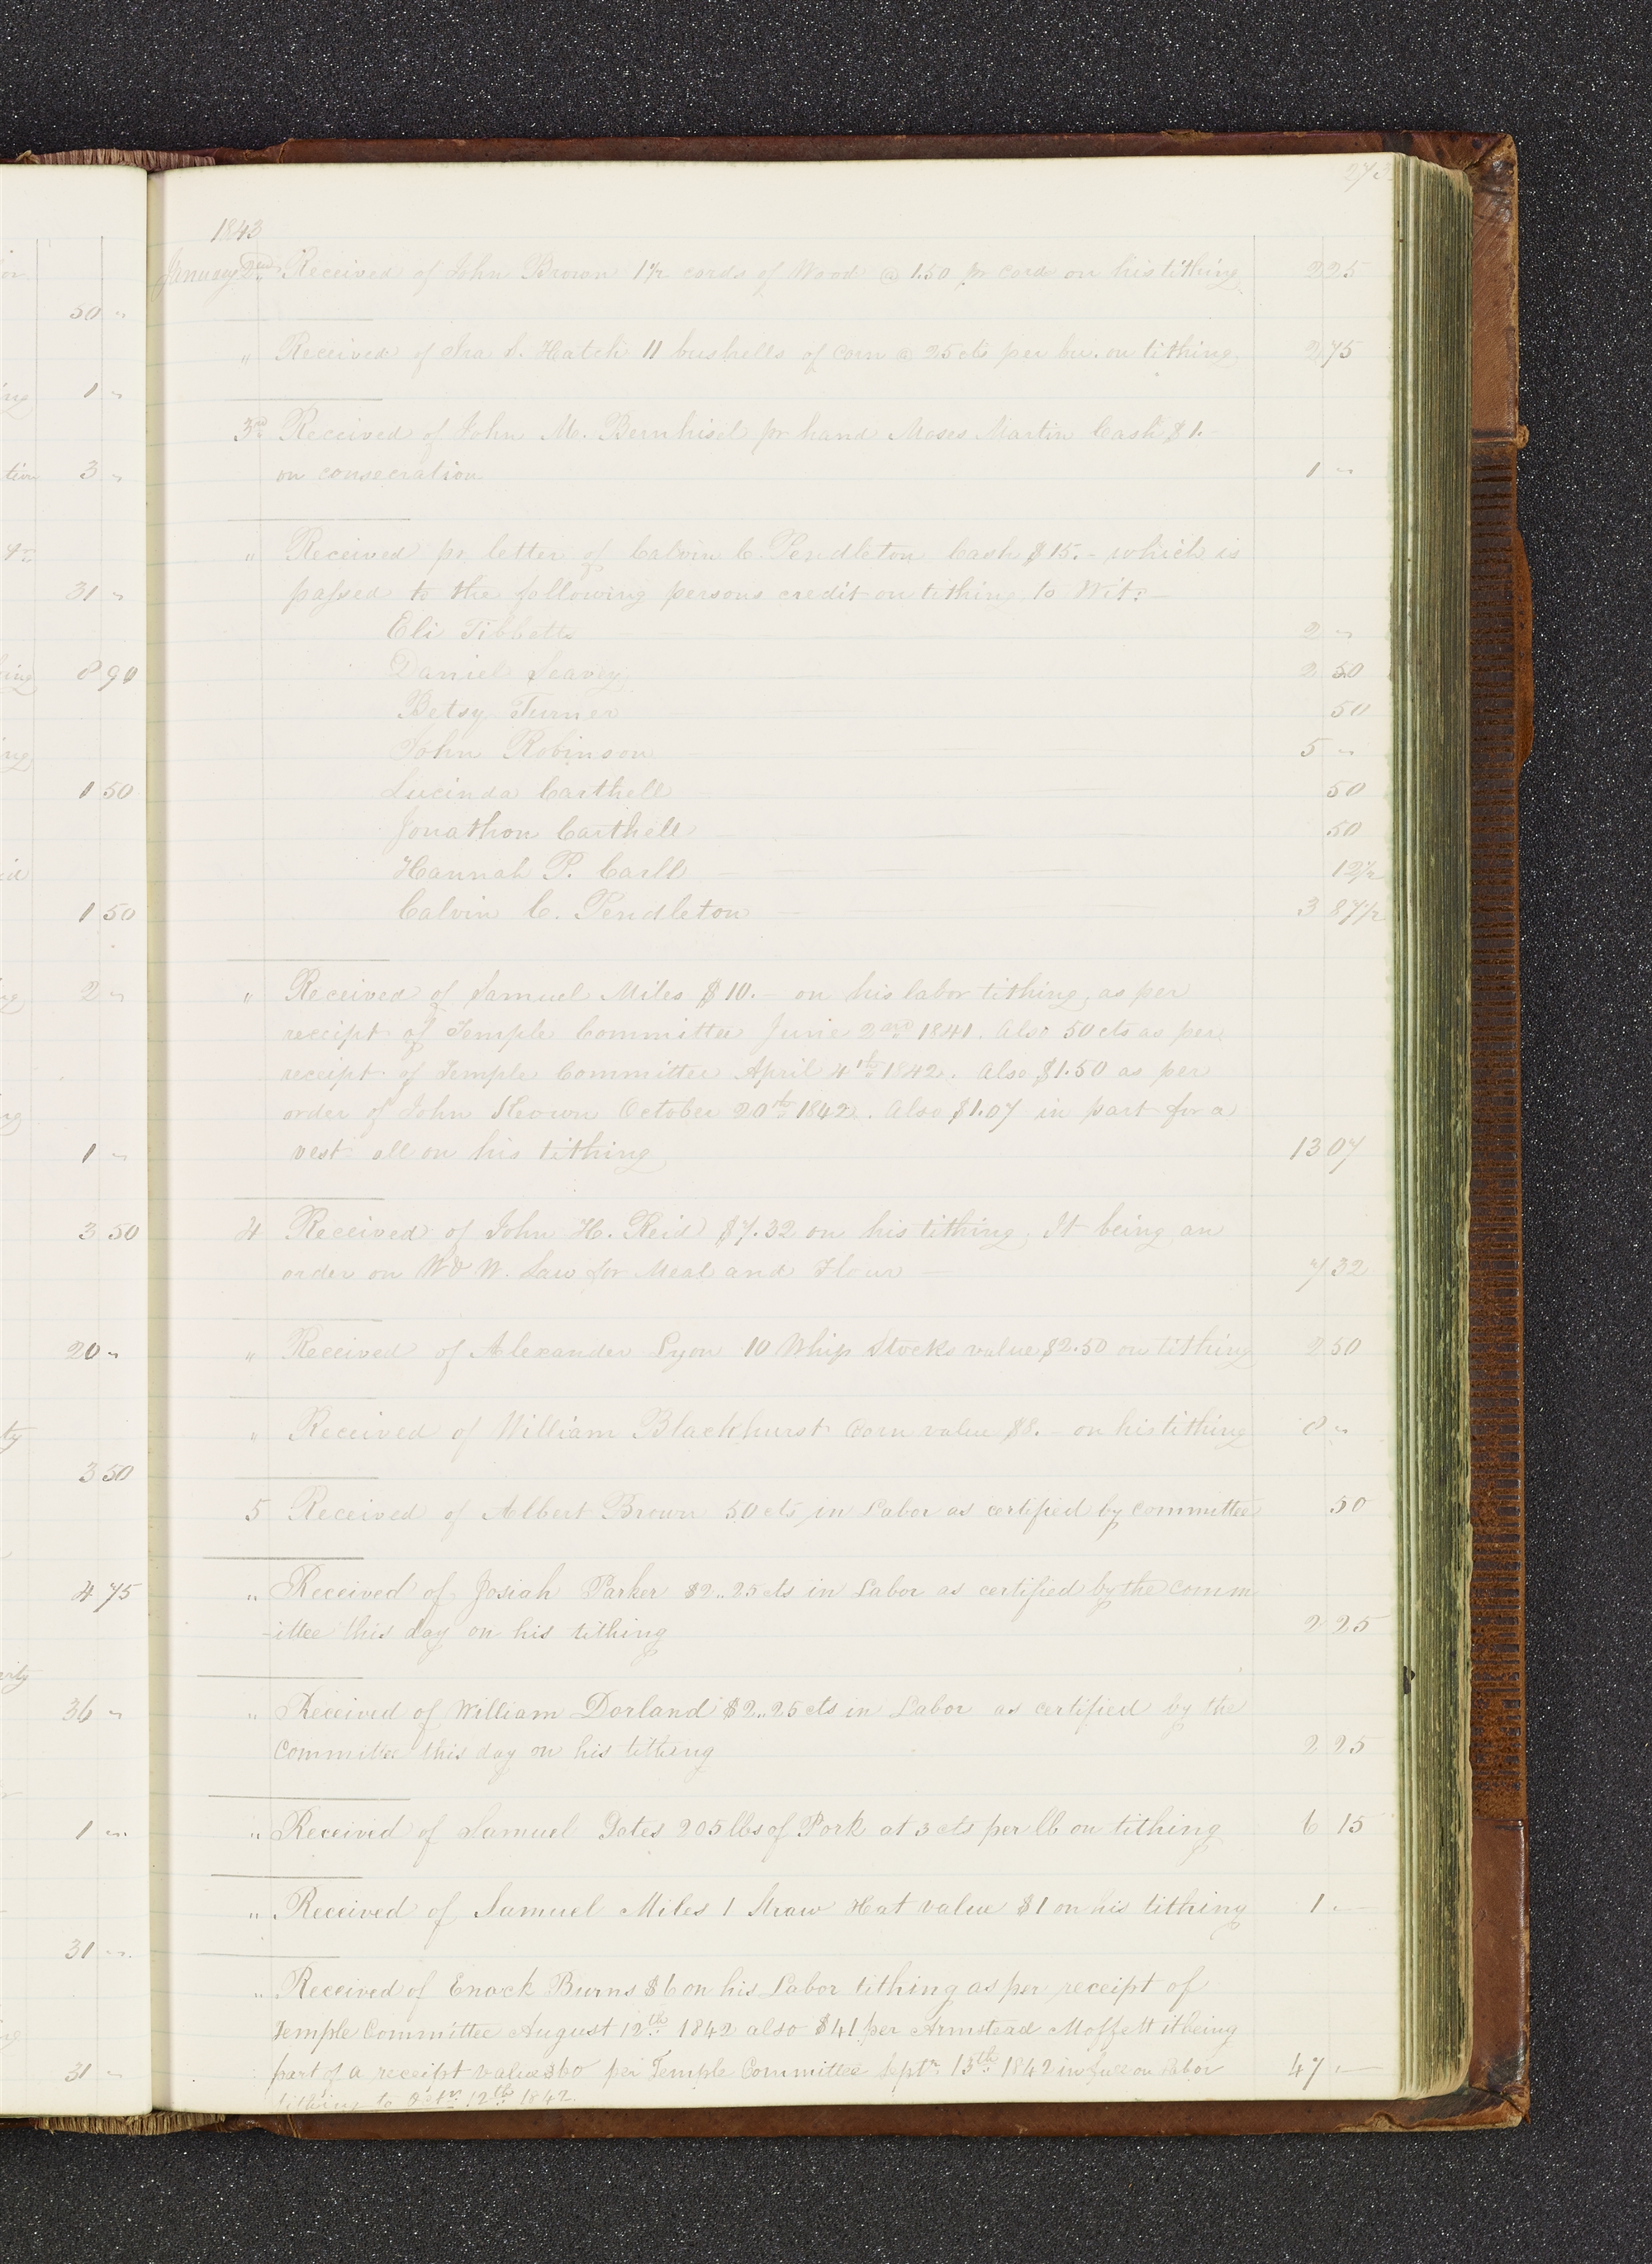 273
1843
January 2nd Received of John Brown 1 1/2 cords of Wood @ 1.50 pr cord on his tithing 2 25
" Received of Ira S. Hatch 11 bushells of Corn @ 25 cts per bu. on tithing 2 75
3rd Received of John M. Bernhisel pr hand Moses Martin Cash $1.–
on consecration 1 "
" Received pr. letter of Calvin C. Pendleton Cash $15.– which is
passed to the following persons credit on tithing, to Wit:–
Eli Tibbetts 2 "
Daniel Seavey 2 50
Betsy Turner 50
John Robinson 5 "
Lucinda Carthell 50
Jonathon Carthell 50
Hannah P. Carll 12 1/2
Calvin C. Pendleton 3 87 1/2
" Received of Samuel Miles $10.– on his labor tithing, as per
receipt of Temple Committee June 2nd 1841. Also 50 cts as per
receipt of Temple Committee April 4th 1842. Also $1.50 as per
order of John Heown October 20th 1842. Also $1.07 in part for a
vest all on his tithing 13 07
4 Received of John H. Reid $7.32 on his tithing, It being an
order on W & W. Law for Meal and Flour – 7 32
" Received of Alexander Lyon 10 Whip Stocks value $2.50 on tithing 2 50
" Received of William Blackhurst Corn value $8.– on his tithing 8 "
5 Received of Albert Brown 50 cts in Labor as certified by committee 50
" Received of Josiah Parker $2..25 cts in Labor as certified by the comm
-ittee this day on his tithing 2 25
" Received of William Dorland $2..25 cts in Labor as certified by the
Committee this day on his tithing 2 25
" Received of Samuel Gates 205 lbs of Pork at 3 cts per lb on tithing 6 15
" Received of Samuel Miles 1 Straw Hat value $1 on his tithing 1 "
" Received of Enock Burns $6 on his Labor tithing as per receipt of
Temple Committee August 12th 1842 also $41 per Armstead Moffett it being
part of a receipt value $60 per Temple Committee Septr. 13th 1842 in full on Labor 47 "
tithing to Octr. 12th 1842.
50 "
1 "
3 "
31 "
8 90
1 50
1 50
2 "
1 "
3 50
20 "
3 50
4 75
36 "
1 "
31 "
31 "